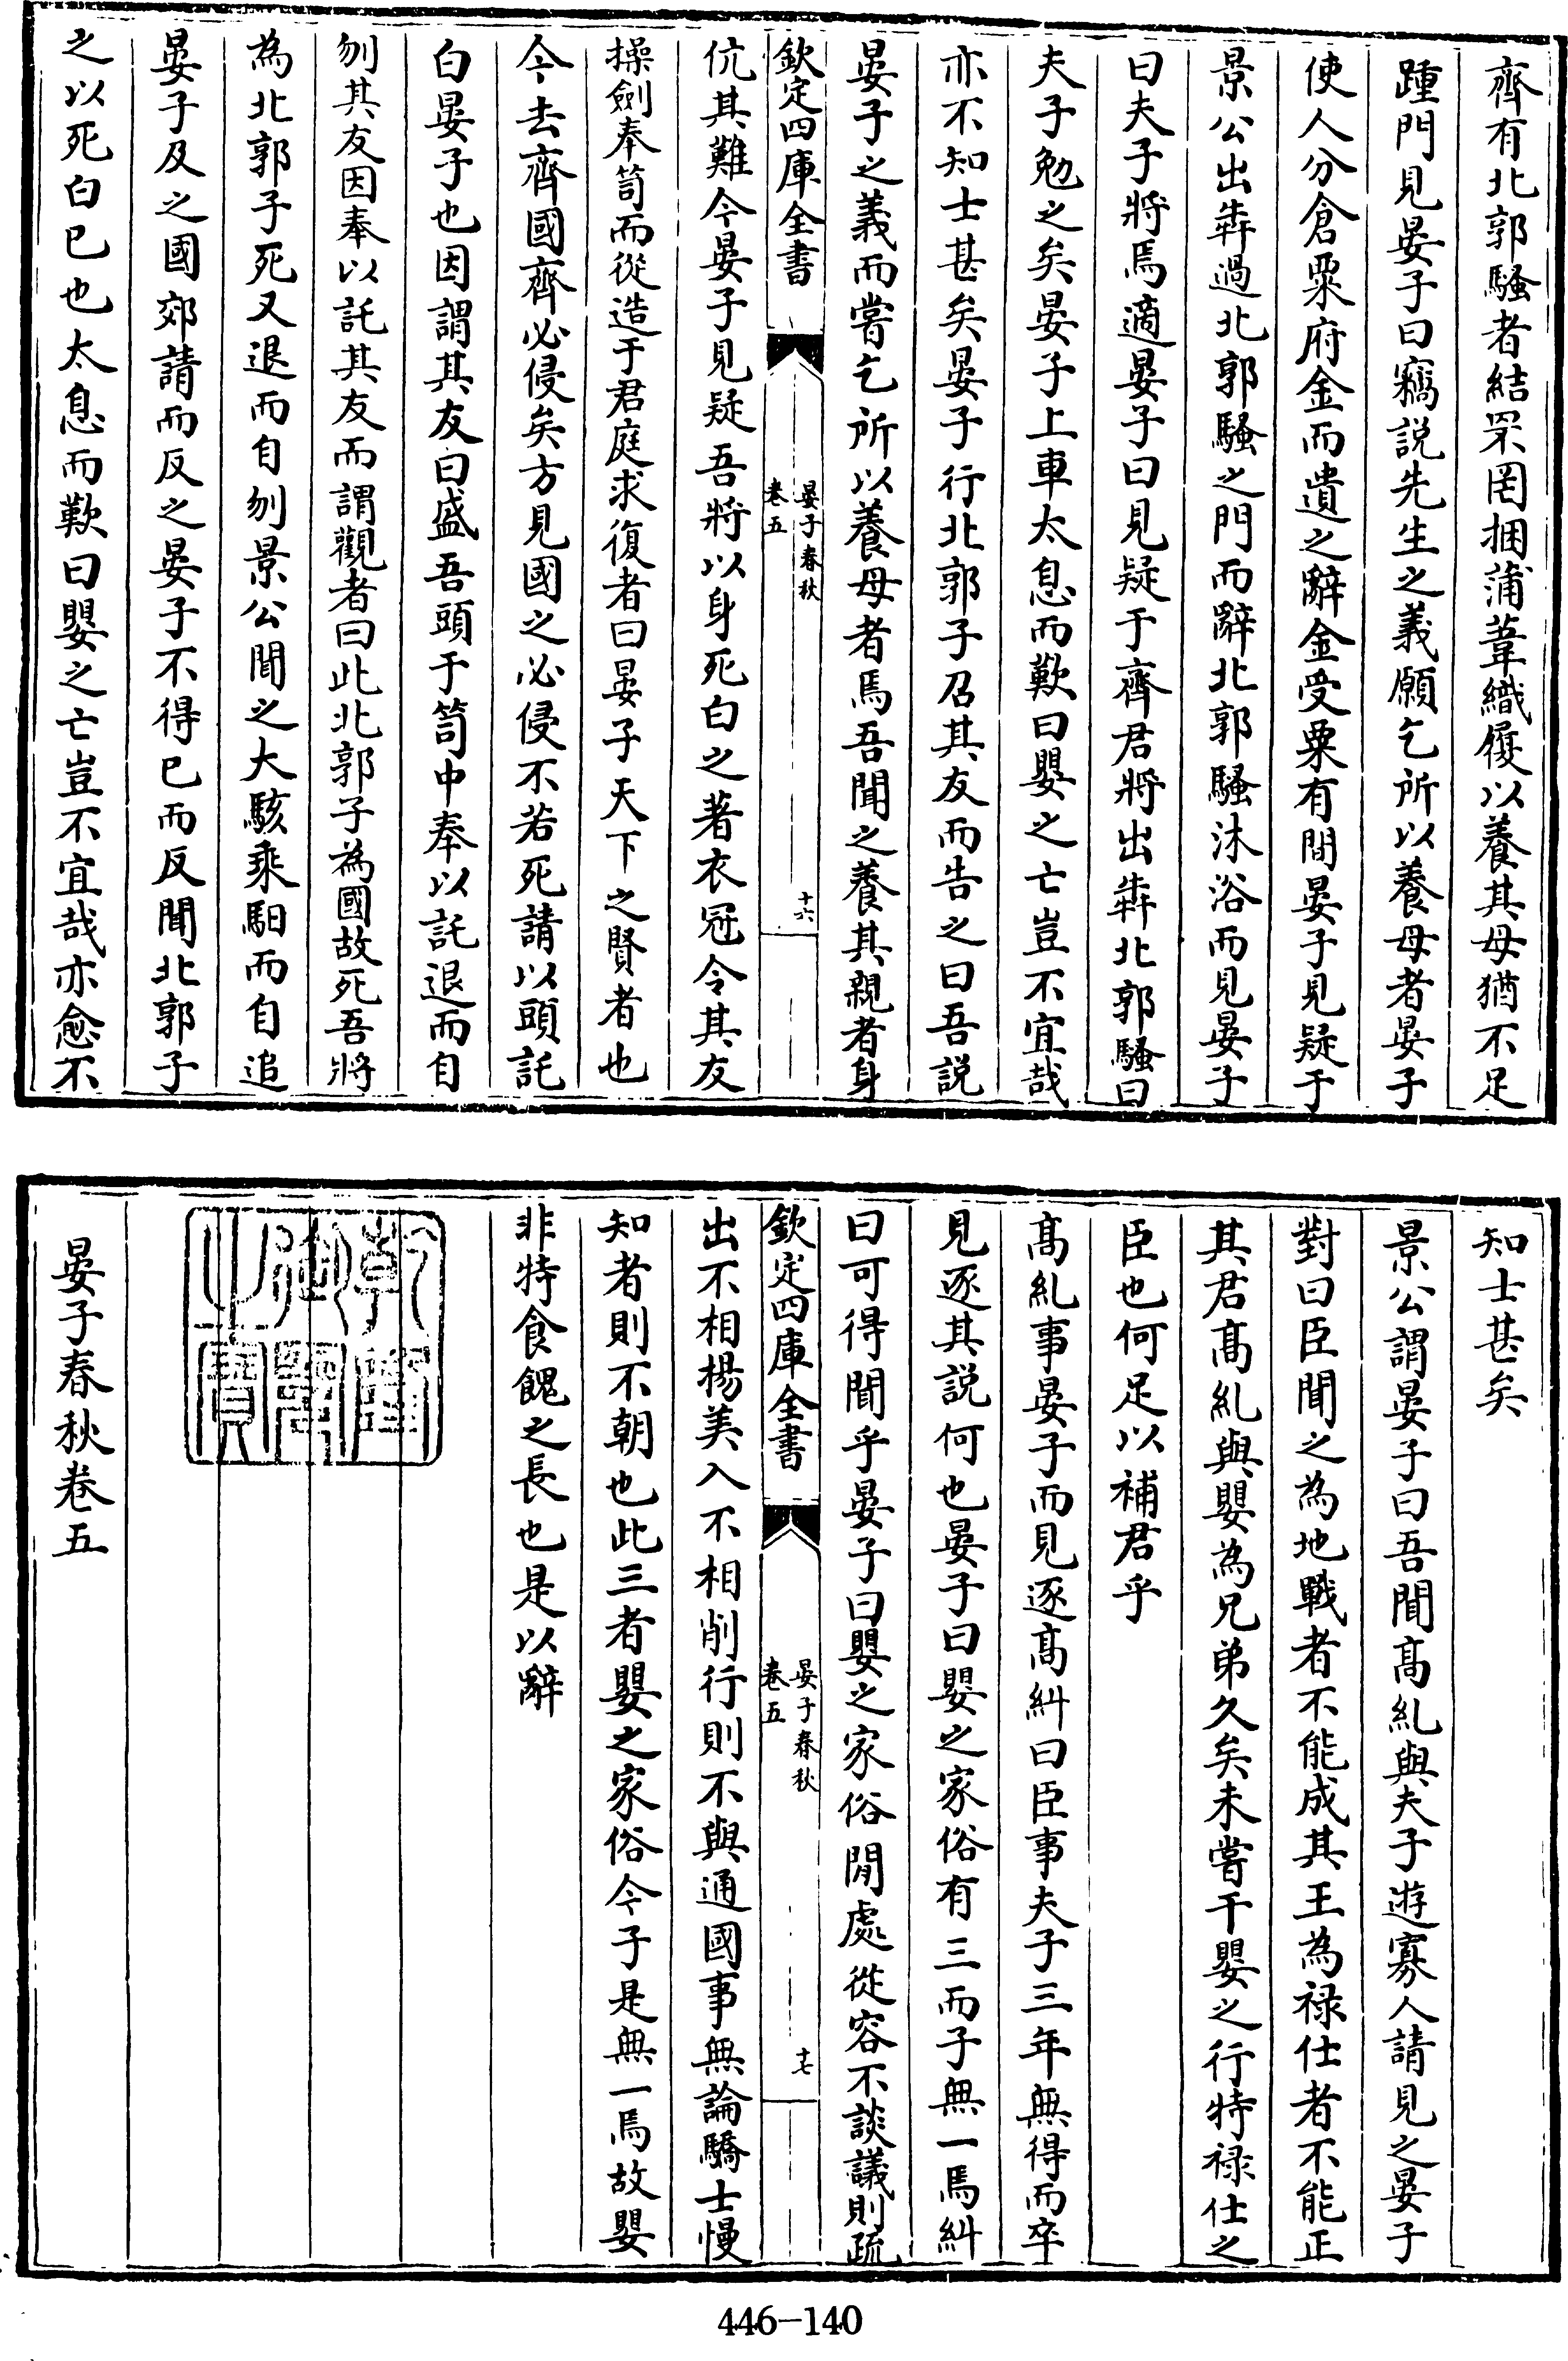 齊有北郭騷者結罘罔捆蒲葦織履以養其母猶不足
踵門見晏子曰竊説先生之義願乞所以養母者晏子
使人分倉粟府金而遺之辭金受粟有間晏子見疑于
景公出犇過北郭騷之門而辭北郭騷沐浴而見晏子
曰夫子將焉適晏子曰見疑于齊君將出犇北郭騷曰
夫子勉之矣晏子上車太息而歎曰嬰之亡豈不宜哉
亦不知士甚矣晏子行北郭子召其友而告之曰吾説
晏子之義而嘗乞所以養母者焉吾聞之養其親者身
欽定四庫全書
晏子春秋
卷五
十六
伉其難今晏子見疑吾將以身死白之著衣冠令其友
操劍奉笥而從造于君庭求復者曰晏子天下之賢者也
今去齊國齊必侵矣方見國之必侵不若死請以頭託
白晏子也因謂其友曰盛吾頭于笥中奉以託退而自
刎其友因奉以託其友而謂觀者曰此北郭子為國故死吾將
為北郭子死又退而自刎景公聞之大駭乘馹而自追
晏子及之國郊請而反之晏子不得已而反聞北郭子
之以死白已也太息而歎曰嬰之亡豈不宜哉亦愈不
知士甚矣
景公謂晏子曰吾聞髙糺與夫子遊寡人請見之晏子
對曰臣聞之為地戰者不能成其王為禄仕者不能正
其君髙糺與嬰為兄弟久矣未嘗干嬰之行特禄仕之
臣也何足以補君乎
髙糺事晏子而見逐髙糾曰臣事夫子三年無得而卒
見逐其説何也晏子曰嬰之家俗有三而子無一焉糾
曰可得聞乎晏子曰嬰之家俗閒處從容不談議則疏
欽定四庫全書
晏子春秋
卷五
十七
出不相揚美入不相削行則不與通國事無論驕士慢
知者則不朝也此三者嬰之家俗今子是無一焉故嬰
非特食餽之長也是以辭
乾隆御覽之寶
晏子春秋卷五
446-140